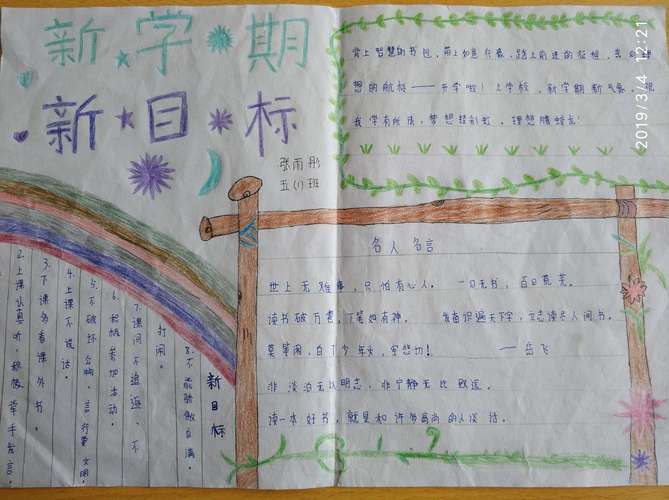 新学期
新目标
张雨彤
五(1)班
背上智慧的书包,
想的航标——开学啦!上学校,新学期新气象,
我学有所成,梦想挂彩虹,理想腾蛟龙!
2019/3/4 12:21
名人名言
世上无难事,只怕有心人。一日无书,百日荒芜。
读书破万卷,下笔如有神。发奋识遍天下字,立志读尽人间书。
莫等闲,白了少年头,空悲切!——岳飞
非淡泊无以明志,非宁静无以致远。
读一本好书,就是和许多高尚的人谈话。
2019
新目标
2.上课认真听,积极举手发言。
3.下课多看课外书。
4.上课不说话。
5.不破坏公物,言行要文明。
6.积极参加活动。
7.课间不追逐、不
打闹。
8.不能骄傲自满。